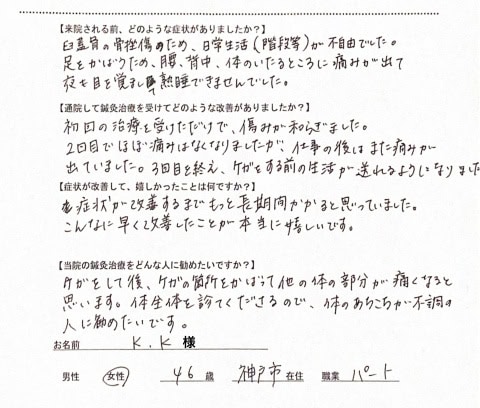 【来院される前、どのような症状がありましたか？】
臼蓋骨の骨挫傷のため、日常生活(階段等)が不自由でした。
足をかばうため、腰、背中、体のいたるところに痛みが出て
夜も目を覚まし熟睡できませんでした。
【通院して鍼灸治療を受けてどのような改善がありましたか？】
初回の治療を受けただけで、傷みが和らぎました。
2回目でほぼ痛みはなくなりましたが、仕事の後はまた痛みが
出ていました。3回目を終え、ケガをする前の生活が送れるようになりました
【症状が改善して、嬉しかったことは何ですか？】
症状が改善するまでもっと長期間かかると思っていました。
こんなに早く改善したことが本当に嬉しいです。
【当院の鍼灸治療をどんな人に勧めたいですか？】
ケガをして後、ケガの箇所をかばって他の体の部分が痛くなると
思います。体全体を診てくださるので、体のあちこちが不調の
人に勧めたいです。
お名前 K.K 様
男性 女性 46 歳 神戸市 在住 職業 パート